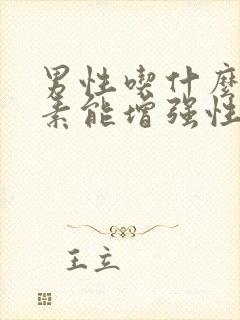 男性喫什麼
素能增强性
王立